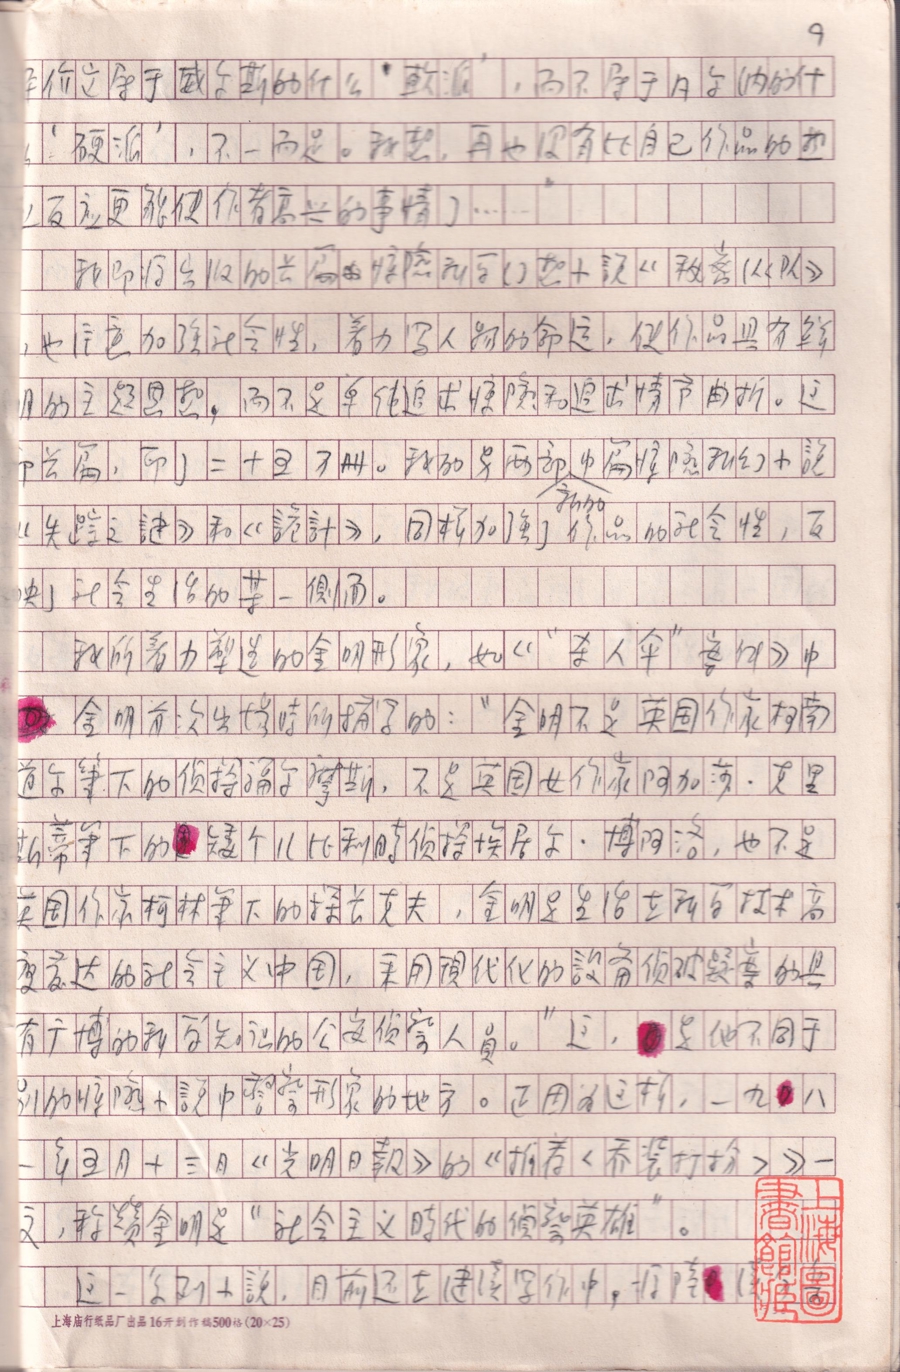 9
价立属于威尔斯的什么“軟派”，而不属于凡尔納的什
“硬派”，不一而足。我想，再也没有比自己作品的
反应更能使作者高兴的事情了……”
我即将出版的长篇惊险科学幻想小説《秘密纵队》
，也注意加强社会性，着力写人物的命运，使作品具有鮮
明的主题思想，而不是单纯追求惊险和追求情节曲折。这
部长篇，印了二十五万册。我的另两部中篇惊险科幻小説
新的
《失踪之謎》和《詭計》，同样加强了作品的社会性，反
映了社会生活的某一側面。
我所着力塑造的金明形象，如《“杀人伞”案件》中
金明首次出場時所描写的：“金明不是英国作家柯南
道尔筆下的侦探福尔摩斯，不是英国女作家阿加莎·克里
斯蒂筆下的矮个儿比利時侦探埃居尔·博阿洛，也不是
英国作家柯林筆下的探长克夫，金明是生活在科学技术高
度发达的社会主义中国，采用現代化的設备侦破疑案的具
有广博的科学知識的公安侦察人員。”这，是他不同于
别的惊险小説中警察形象的地方。正因为这样，一九八
一年五月十三日《光明日報》的《推荐〈乔装打扮〉》一
文，称贊金明是“社会主义時代的偵察英雄”。
这一系列小説，目前还在继續写作中，惊险
上海图書館藏
上海庙行纸品厂出品 16开到作稿500格(20×25)